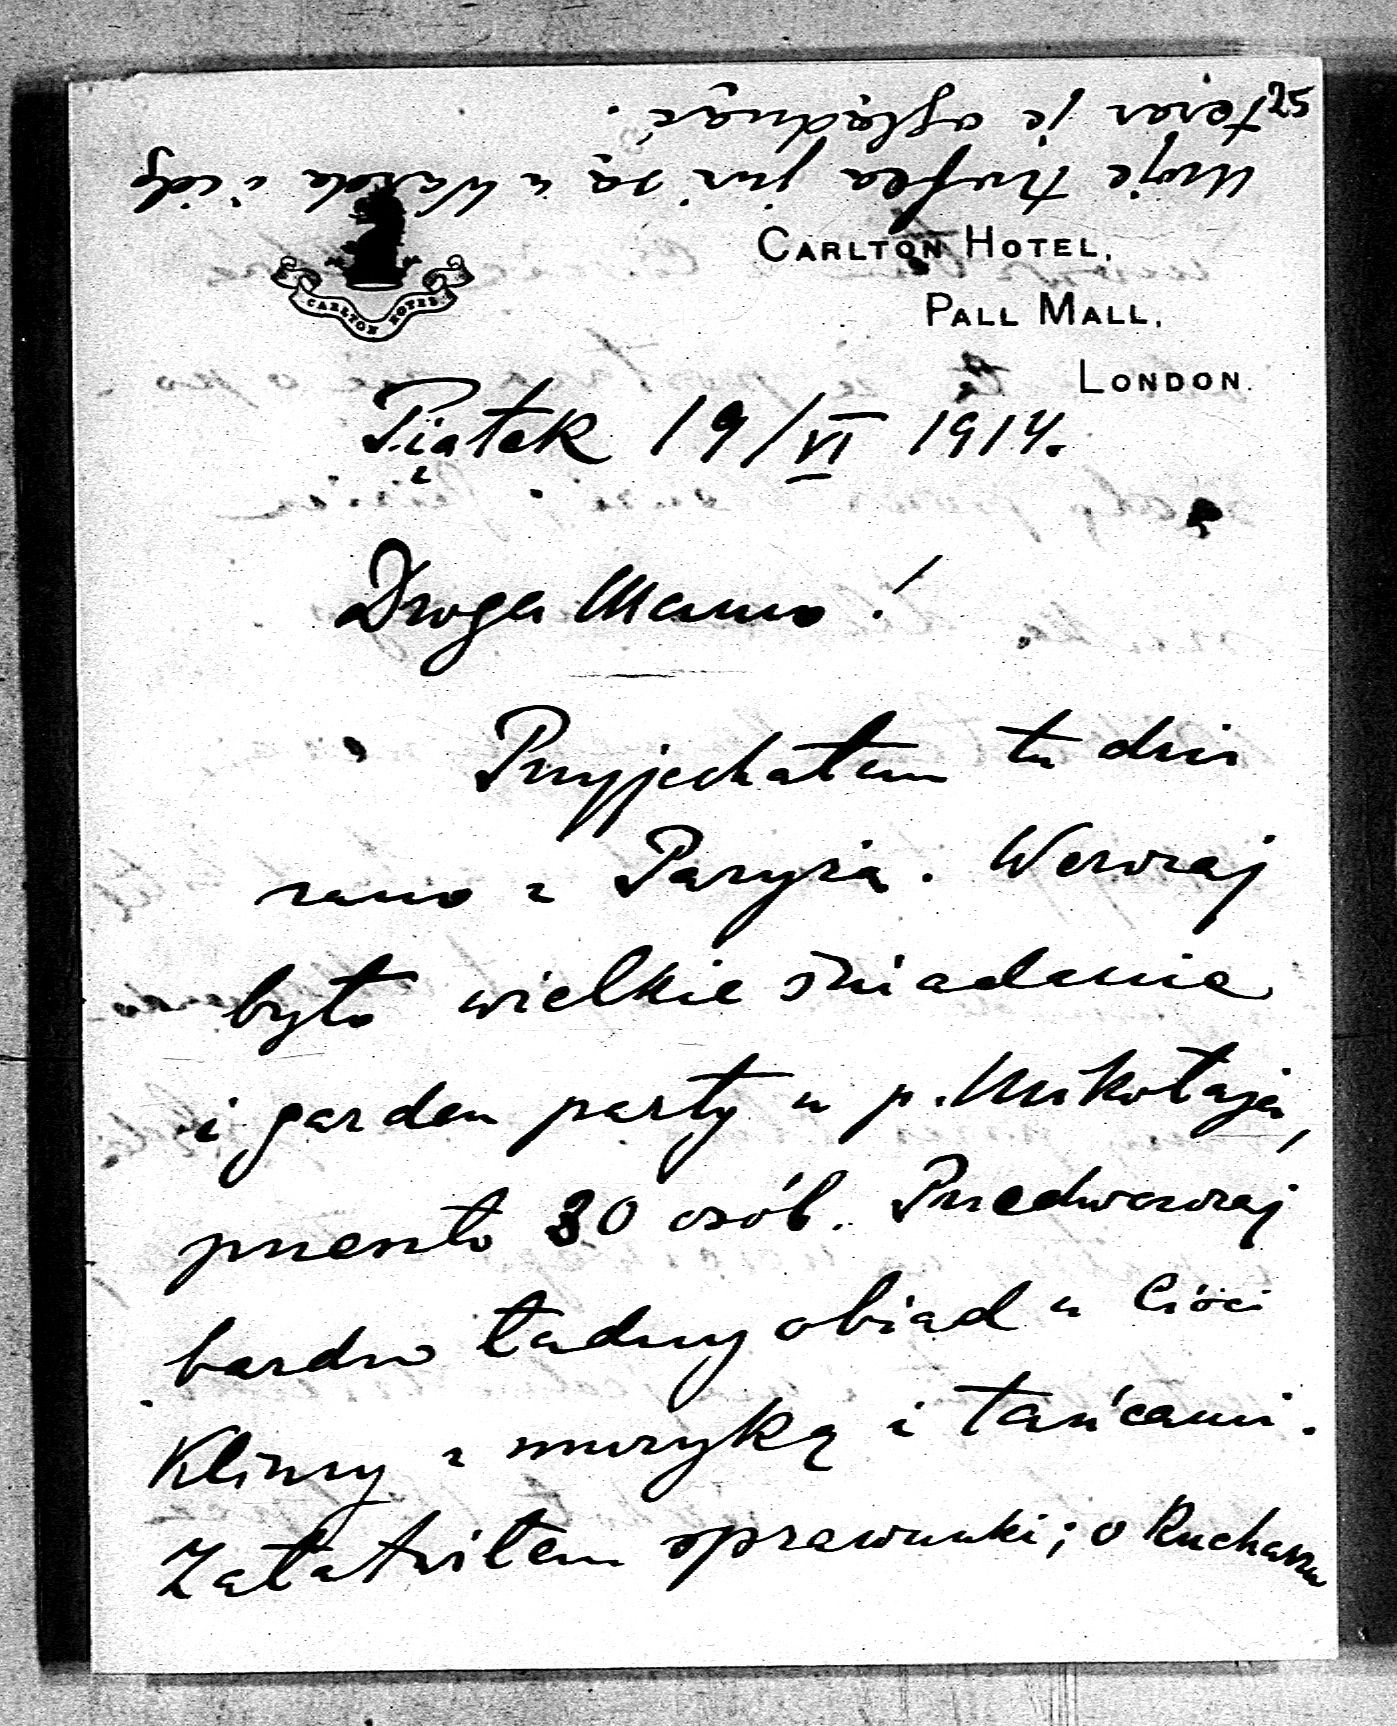 25
Moje trofea już są u Warda i idę
teraz je oglądnąć.
CARLTON HOTEL
CARLTON HOTEL,
PALL MALL,
LONDON.
Piątek 19/VI 1914.
Droga Mamo!
Przyjechałem tu dziś
rano z Paryża. Wczoraj
było wielkie śniadanie
i garden party u p. Mikołaja,
przeszło 30 osób. Przedwczoraj
bardzo ładny obiad u Cioci
Klimy z muzyką i tańcami.
Załatwiłem sprawunki; o